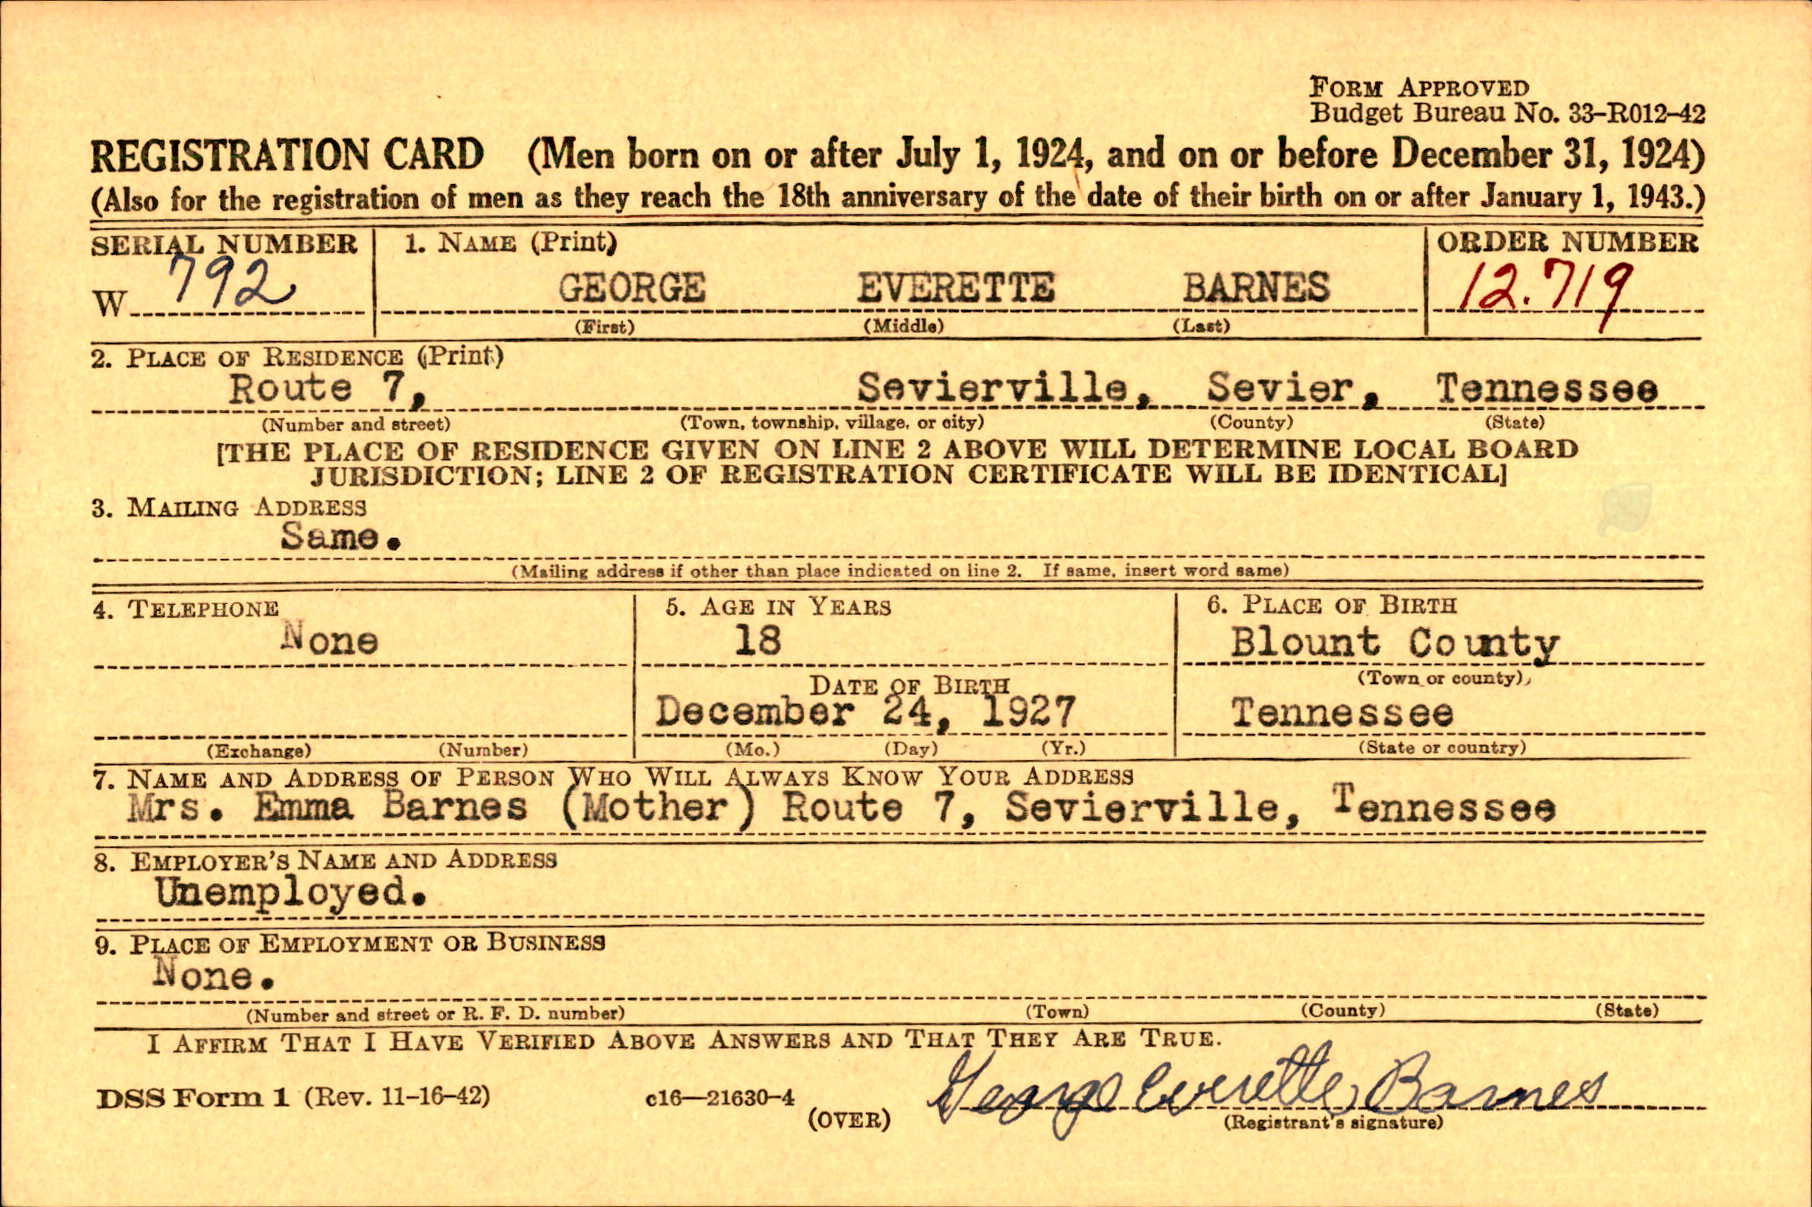 FORM APPROVED
Budget Bureau No. 33–R012–42
REGISTRATION CARD (Men born on or after July 1, 1924, and on or before December 31, 1924)
(Also for the registration of men as they reach the 18th anniversary of the date of their birth on or after January 1, 1943.)
SERIAL NUMBER 1. NAME (Print) ORDER NUMBER
W 792 GEORGE EVERETTE BARNES 12.719
(First) (Middle) (Last)
2. PLACE OF RESIDENCE (Print)
Route 7, Sevierville, Sevier, Tennessee
(Number and street) (Town, township, village, or city) (County) (State)
[THE PLACE OF RESIDENCE GIVEN ON LINE 2 ABOVE WILL DETERMINE LOCAL BOARD
JURISDICTION; LINE 2 OF REGISTRATION CERTIFICATE WILL BE IDENTICAL]
3. MAILING ADDRESS
Same.
(Mailing address if other than place indicated on line 2. If same, insert word same)
4. TELEPHONE 5. AGE IN YEARS 6. PLACE OF BIRTH
None 18 Blount County
DATE OF BIRTH (Town or county)
December 24, 1927 Tennessee
(Exchange) (Number) (Mo.) (Day) (Yr.) (State or country)
7. NAME AND ADDRESS OF PERSON WHO WILL ALWAYS KNOW YOUR ADDRESS
Mrs. Emma Barnes (Mother) Route 7, Sevierville, Tennessee
8. EMPLOYER'S NAME AND ADDRESS
Unemployed.
9. PLACE OF EMPLOYMENT OR BUSINESS
None.
(Number and street or R. F. D. number) (Town) (County) (State)
I AFFIRM THAT I HAVE VERIFIED ABOVE ANSWERS AND THAT THEY ARE TRUE.
DSS Form 1 (Rev. 11–16–42) c16—21630–4 George Everette Barnes
(OVER) (Registrant's signature)